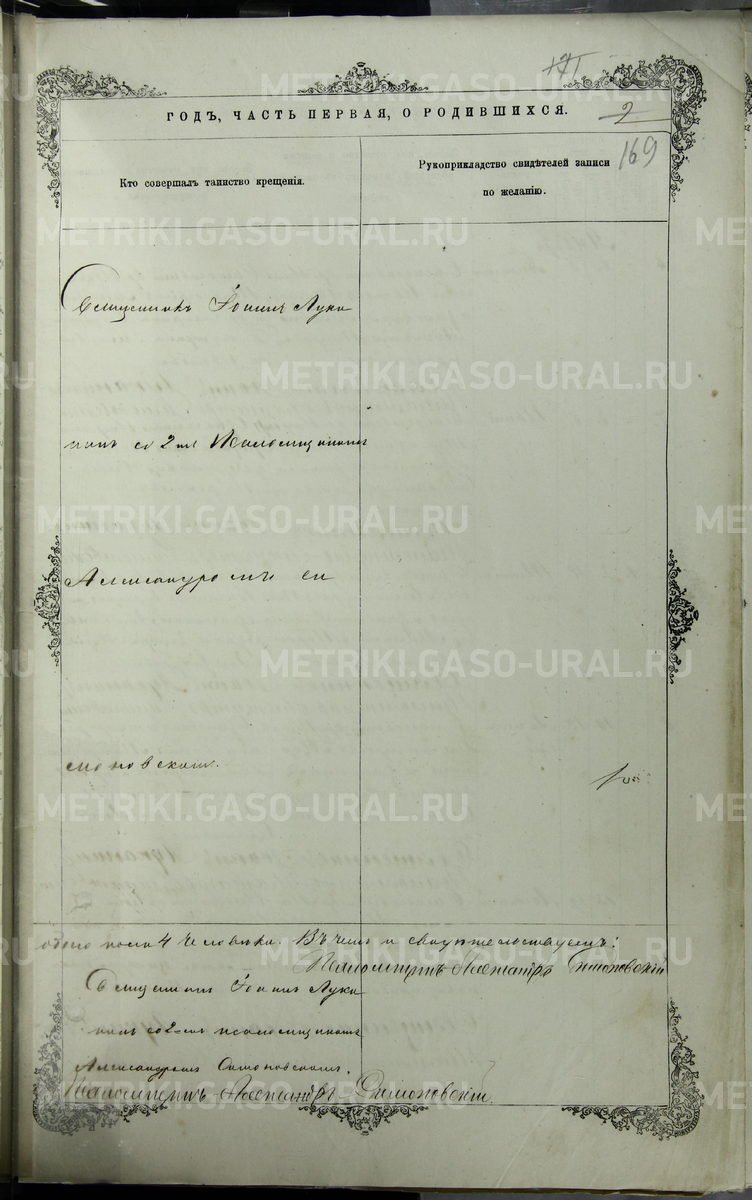 171
ГОДЪ, ЧАСТЬ ПЕРВАЯ, О РОДИВШИХСЯ.
2
169
Кто совершалъ таинство крещенія.
Рукоприкладство свидѣтелей записи
по желанію.
Священникъ Іоаннъ Лука
нинъ со 2мъ Псаломщикомъ
Александромъ Си
моновскимъ.
пола 4 человѣка. Въ чемъ и свидѣтельствуемъ:
Псаломщикъ Александръ Симоновскій
Священникъ Іоаннъ Лука
нинъ со 2-мъ псаломщикомъ
Александромъ Симоновскимъ.
Псаломщикъ Александръ Симоновскій.
METRIKI.GASO-URAL.RU